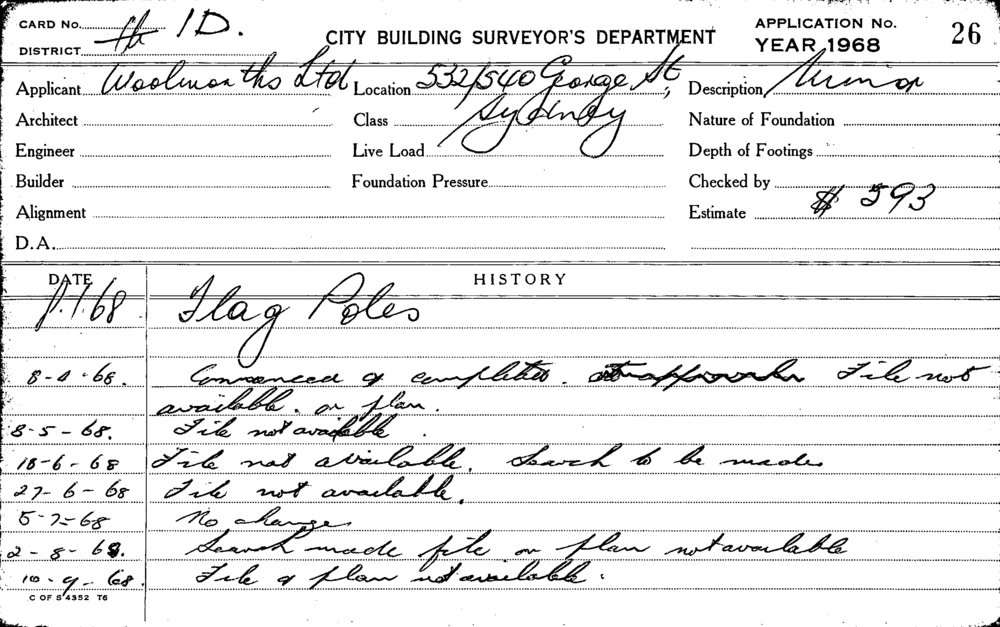 CARD No. 1D.
DISTRICT
CITY BUILDING SURVEYOR'S DEPARTMENT
APPLICATION No.
YEAR 1968
26
Applicant Woolworths Ltd Location 532/540 George St, Description Minor
Architect Class Sydney Nature of Foundation
Engineer Live Load Depth of Footings
Builder Foundation Pressure Checked by
Alignment Estimate $ 593
D.A.
DATE HISTORY
1.68 Flag Poles
8-4-68. Commenced & completed. File not
available. or plan.
8-5-68. File not available.
18-6-68 File not available. Search to be made
27-6-68 File not available.
5-7-68 No change
2-8-68. Search made file or plan not available
10-9-68. File & plan not available.
C OF S 4352 T6